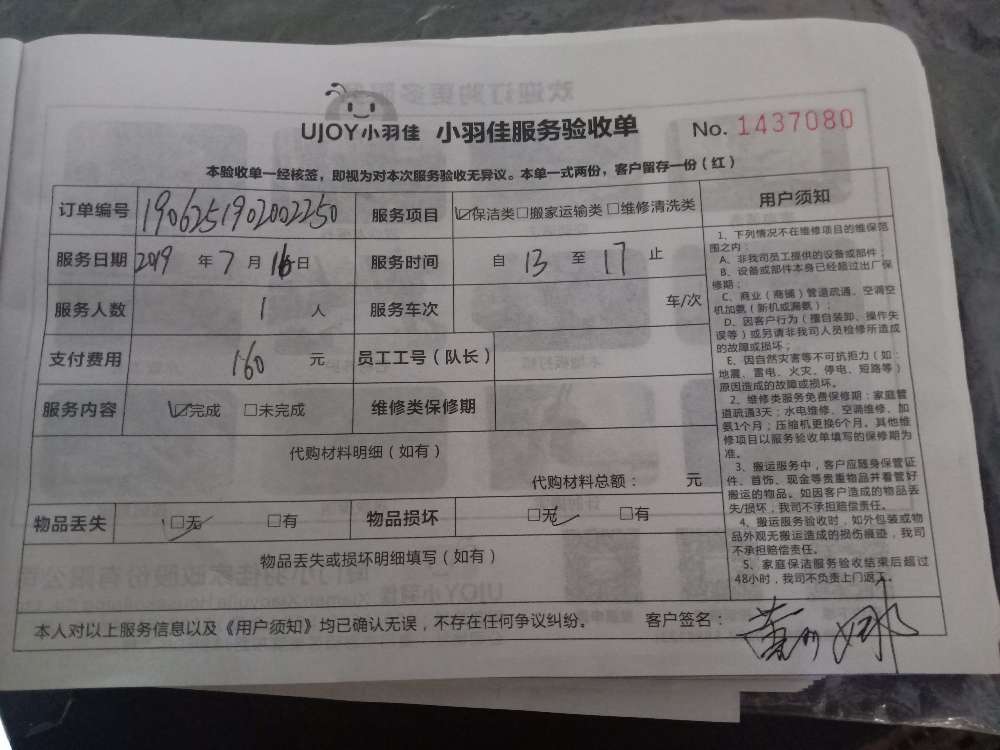 UJOY小羽佳 小羽佳服务验收单 No. 1437080
本验收单一经核签，即视为对本次服务验收无异议。本单一式两份，客户留存一份（红）
订单编号 1906251902002250 服务项目 ☑保洁类□搬家运输类□维修清洗类
服务日期 2019 年 7 月 16 日 服务时间 自 13 至 17 止
服务人数 1 人 服务车次 车/次
支付费用 160 元 员工工号（队长）
服务内容 ☑完成 □未完成 维修类保修期
代购材料明细（如有）
代购材料总额： 元
物品丢失 ☑无 □有 物品损坏 ☑无 □有
物品丢失或损坏明细填写（如有）
本人对以上服务信息以及《用户须知》均已确认无误，不存在任何争议纠纷。 客户签名：
用户须知
1、下列情况不在维修项目的维保范
围之内：
A、非我司员工提供的设备或部件；
B、设备或部件本身已经超过出厂保
修期；
C、商业（商铺）管道疏通、空调空
机加氨（新机或漏氨）；
D、因客户行为（擅自装卸、操作失
误等）或另请非我司人员检修所造成
的故障或损坏；
E、因自然灾害等不可抗拒力（如：
地震、雷电、火灾、停电、短路等）
原因造成的故障或损坏。
2、维修类服务免费保修期：家庭管
道疏通3天；水电维修、空调维修、加
氨1个月；压缩机更换6个月。其他维
修项目以服务验收单填写的保修期为
准。
3、搬运服务中，客户应随身保管证
件、首饰、现金等贵重物品并看管好
搬运的物品。如因客户造成的物品丢
失/损坏，我司不承担赔偿责任。
4、搬运服务验收时，如外包装或物
品外观无搬运造成的损伤痕迹，我司
不承担赔偿责任。
5、家庭保洁服务验收结束后超过
48小时，我司不负责上门返工。